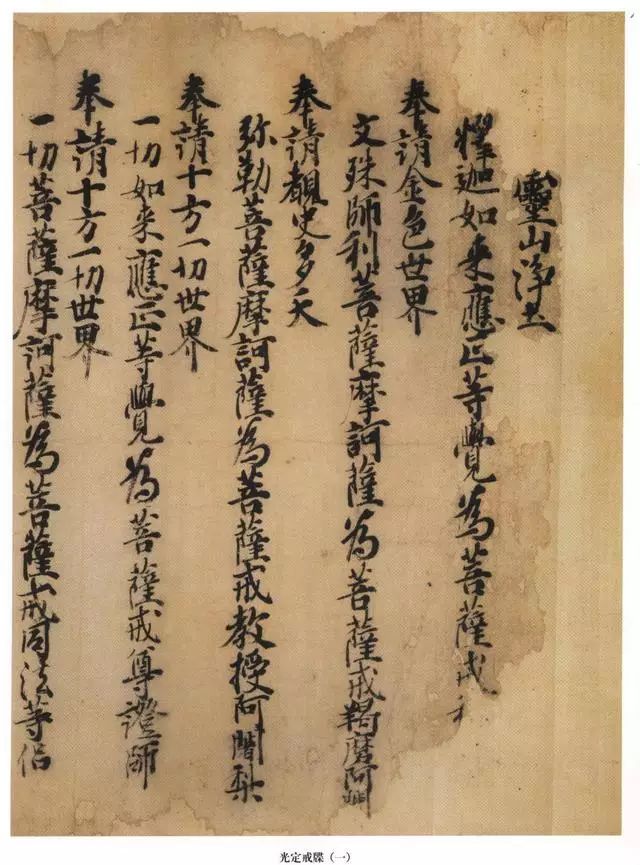 靈山淨土
釋迦如来應正等覺為菩薩戒
奉請金色世界
文殊師利菩薩摩訶薩為菩薩戒羯磨阿
奉請覩史多天
弥勒菩薩摩訶薩為菩薩戒教授阿闍梨
奉請十方一切世界
一切如来應正等覺為菩薩戒尊證師
奉請十方一切世界
一切菩薩摩訶薩為菩薩戒同法等侶
光定戒牒（一）